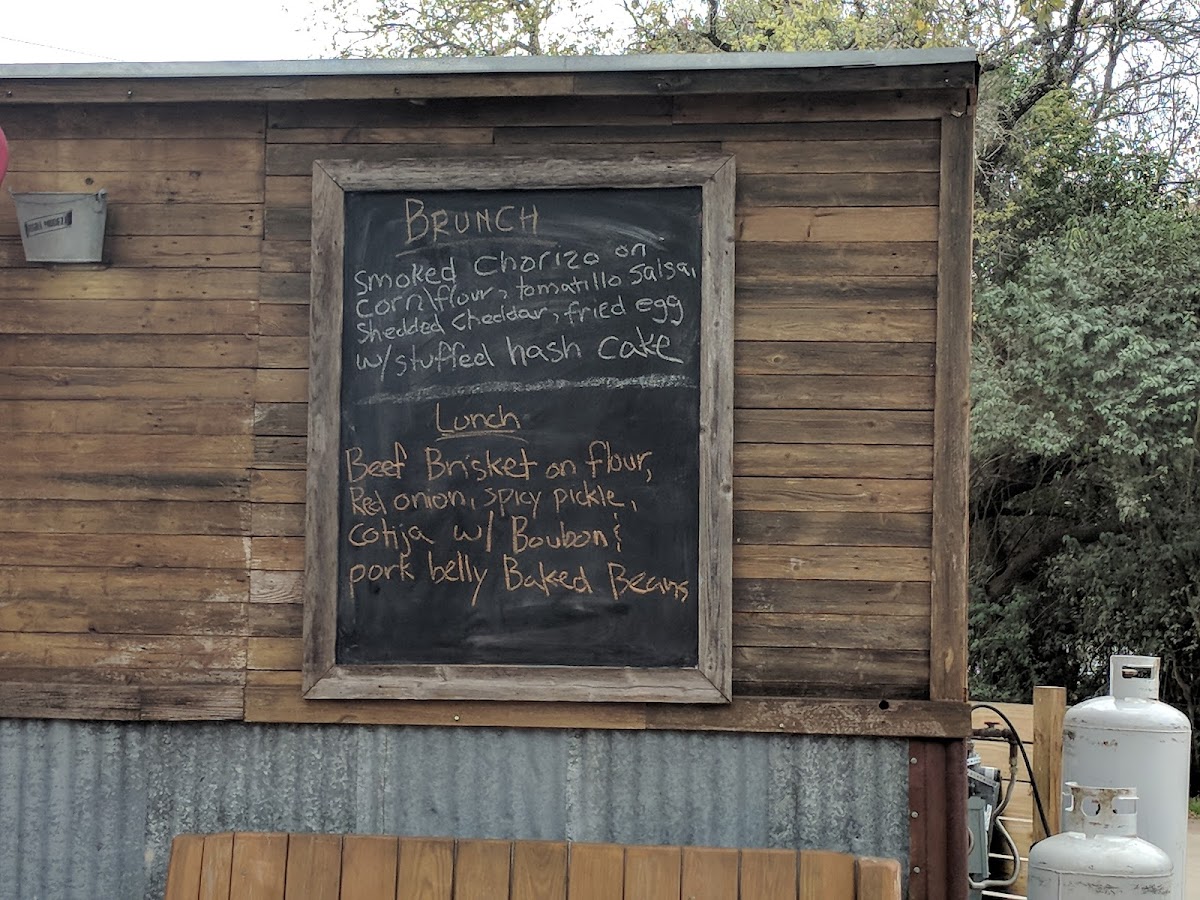 BRUNCH
Smoked Chorizo on
Corn\flour, tomatillo Salsa,
Shedded Cheddar, fried egg
w/stuffed hash cake
Lunch
Beef Brisket on flour,
Red onion, spicy pickle,
cotija w/ Boubon &
pork belly Baked Beans